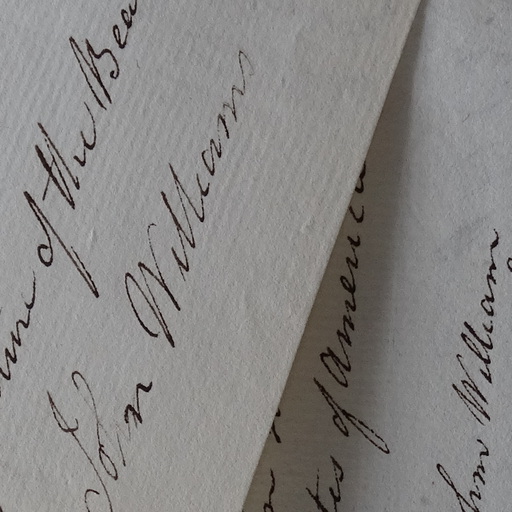 of the
John Williams
tes of America
John William